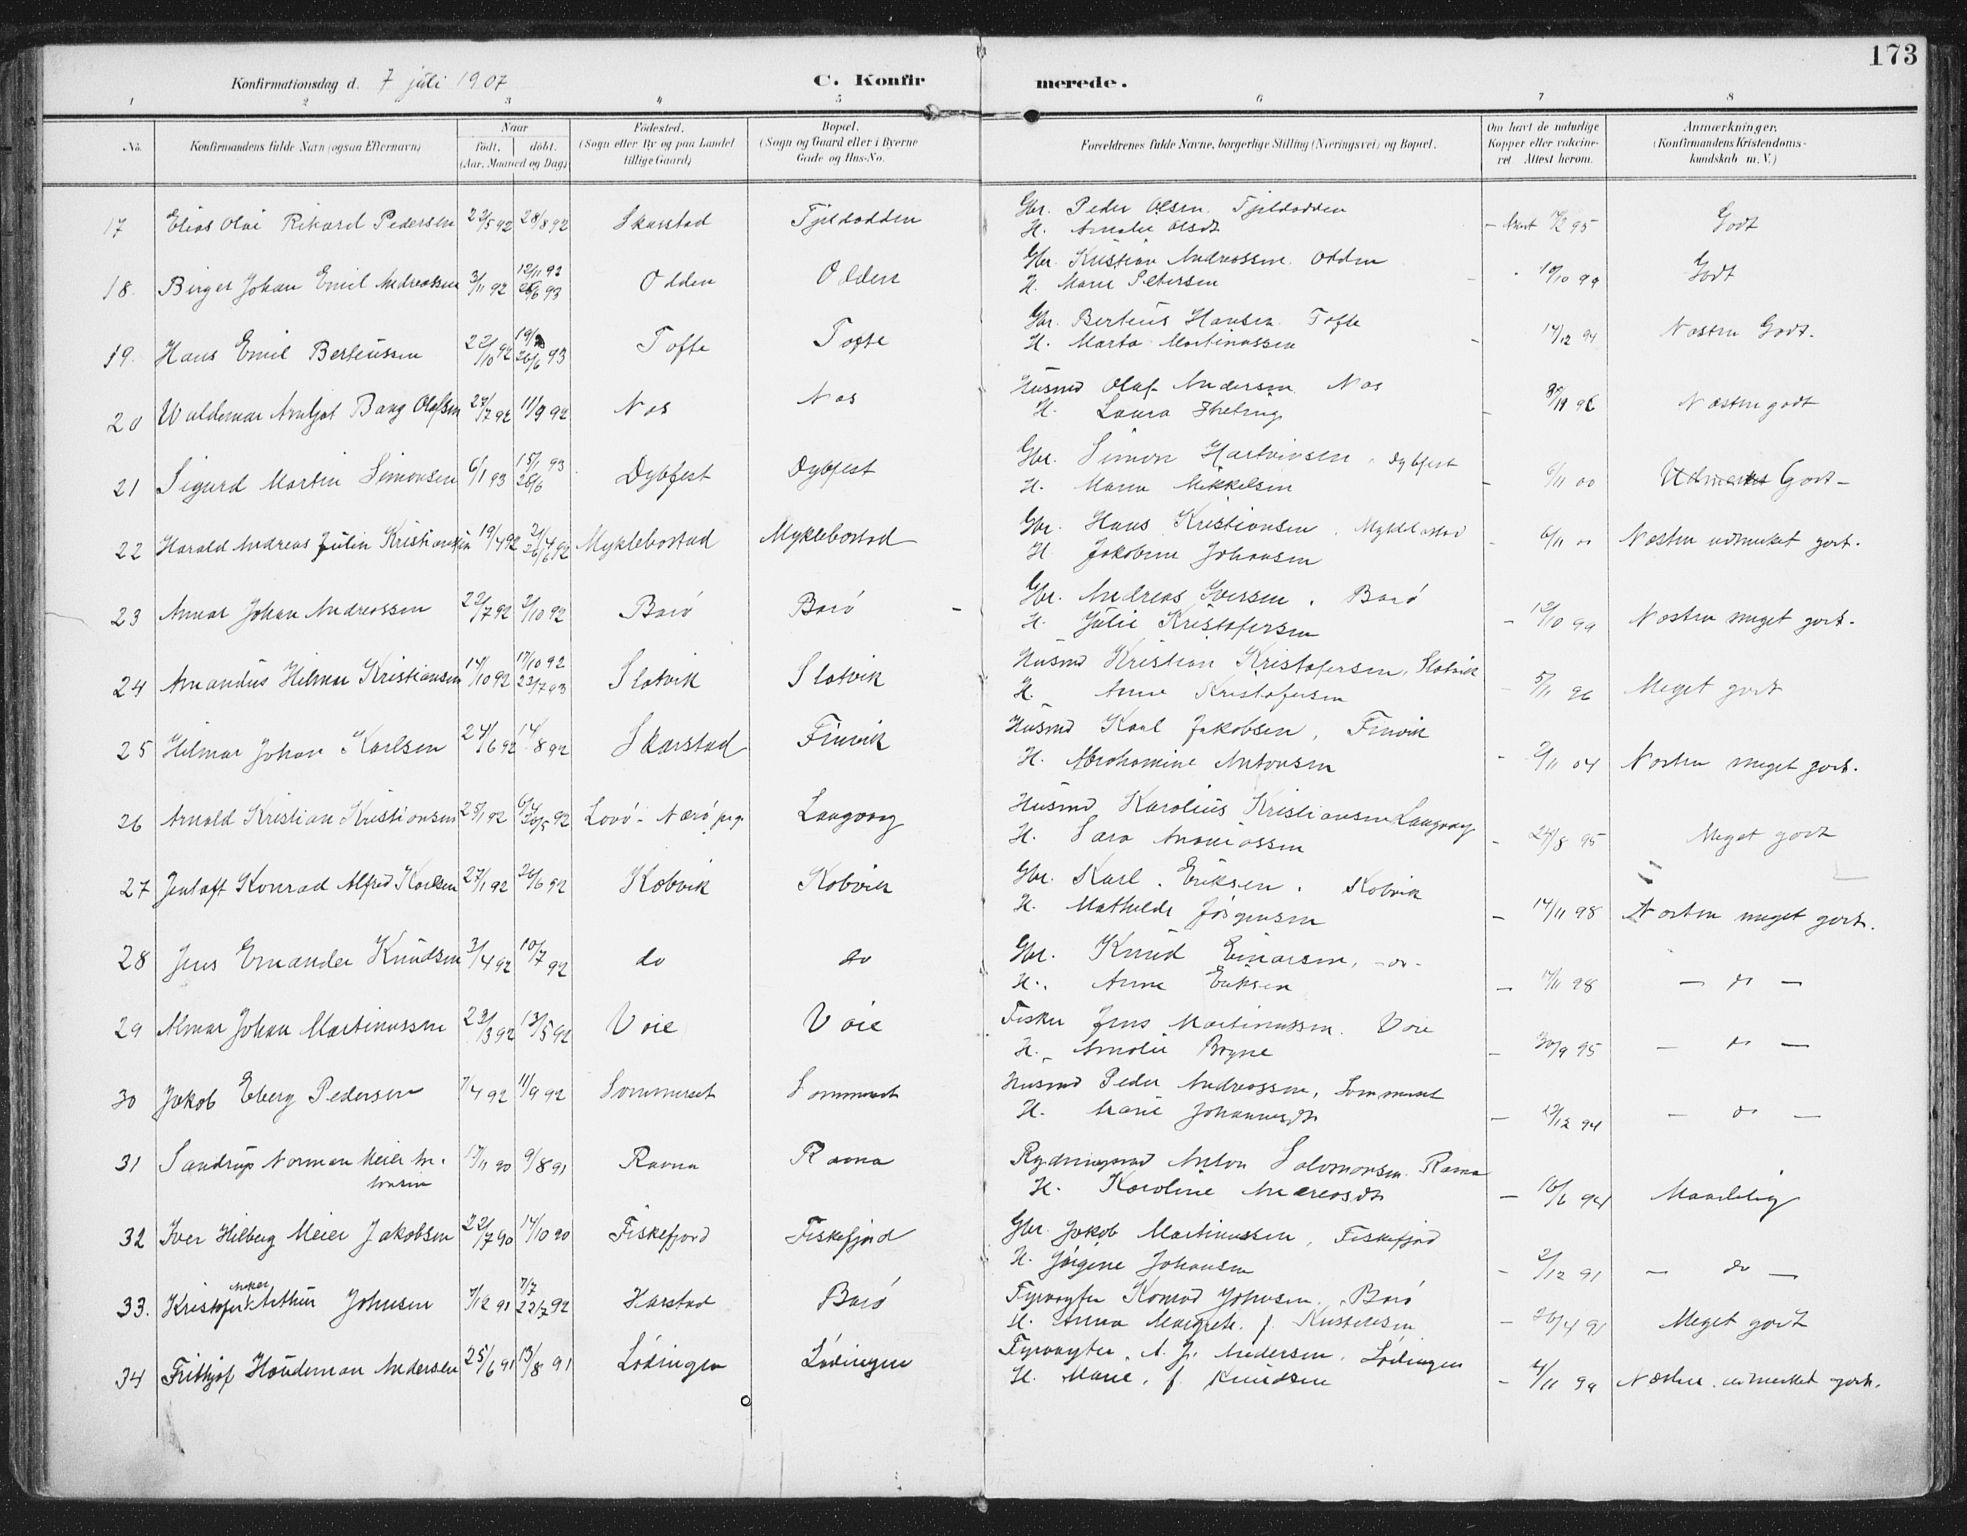 173
Konfirmationsdag d. 7 juli 1907 C. Konfirmerede.
1 2 3 4 5 6 7 8
No. Konfirmandens fulde Navn (ogsaa Efternavn) Naar født. døbt. (Aar, Maaned og Dag) Fødested. (Sogn eller By og paa Landet tillige Gaard) Bopæl. (Sogn og Gaard eller i Byerne Gade og Hus-No. Forældrenes fulde Navne, borgerlige Stilling (Næringsvei) og Bopæl. Om havt de naturlige Kopper eller vakcineret. Attest herom. Anmærkninger. (Konfirmandens Kristendomskundskab m. V.)
17 Elias Olai Rikard Pedersen 22/5 92 28/8 92 Skarstad Fjeldodden Gbr. Peder Olsen Fjeldodden 95 Godt
H. Amalie Olsdt
18. Birger Johan Emil Andreassen 3/11 92 12/11 92 26/6 93 Odden Odden Gbr. Kristian Andreassen Odden 19/10 99 Godt
H. Marie Petersen
19. Hans Emil Berteussen 22/10 92 26/6 93 Tofte Tofte Gbr. Berteus Hansen Tofte 14/12 94 Næsten Godt.
H. Marta Martinussen
20 Waldemar Arnljot Bang Olafsen 27/7 92 11/9 92 Nes Nes Husmd Olaf Andersen Nes 96 Næsten godt
H. Laura
21 Sigurd Martin Simonsen 6/1 93 15/1 93 26/6 Dybfest Dybfest Gbr. Simon Hartvigsen. Dybfest 6/11 00 Godt -
H. Maren Mikkelsen
22 Harald Andreas Julin Kristiansen 19/4 92 26/6 92 Myklebostad Myklebostad Gbr. Hans Kristiansen. Myklebostad 6/11 00 Næsten udmerket godt.
H. Jakobine Johansen
23 Annar Johan Andreassen 22/7 92 2/10 92 Barø Barø Gbr. Andreas Iversen. Barø 12/10 99 Næsten meget godt.
H. Julie Kristofersen
24 Amandus Hilmar Kristiansen 14/10 92 17/10 92 23/7 93 Slotvik Slotvik Husmd Kristian Kristofersen, Slotvik 5/11 96 Meget godt
H. Anne Kristofersen
25 Hilmar Johan Karlsen 24/6 92 14/8 92 Skarstad Finvik Husmd Karl Jakobsen, Finvik 2/11 04 Næsten meget godt.
H. Abrahamine Antonsen
26 Arnold Kristian Kristiansen 25/1 92 Lovø - Nærø prgj Langvag Husmd Karolius Kristiansen Langvag 24/8 95 Meget godt
H. Sara Ananiassen
27 Jentoft Konrad Alfred Karlsen 27/1 92 26/6 92 Kobvik Kobvik Gbr. Karl. Eriksen. Kobvik 14/11 98 Næsten meget godt.
H. Mathilde Jørgensen
28 Jens Emander Knudsen 3/4 92 10/7 92 do do Gbr. Knud Einarsen, - do - 14/11 98 - do -
H. Anne Eriksen
29 Almar Johan Martinussen 23/3 92 13/5 92 Voie Voie Fisker Jens Martinussen. Voie 30/9 95 - do -
H. Amalie Bryne
30 Jakob Eberg Pedersen 7/4 92 11/9 92 Sommerset Sommerset Husmd Peder Andreassen, Sommerset 12/12 94 - do -
H. Marie Johannesdt
31 Sandrup Norman Meier An- 17/11 90 9/8 91 Ramna Ramna Anton Salomonsen. Ramna 94 Maadelig
tonsen H. Karoline Andreasdt
32 Iver Hilberg Meier Jakobsen 22/7 90 14/10 90 Fiskefjord Fiskefjord Gbr. Jakob Martinussen, Fiskefjord 2/12 91 - do -
H. Jørgine Johansen
33. Kristofer Anker Arthur Johnsen 7/12 91 7/7 22/7 92 Harstad Barø Fyrvogter Konrad Johnsen. Barø Meget godt
H. Anna Margrete f. Kristensen
34 Frithjof Houdeman Andersen 25/6 91 13/8 91 Lødingen Lødingen Fyrvogter A. J. Andersen. Lødingen 4/11 99 Næsten udmerket godt.
H. Marie, f. Knudsen